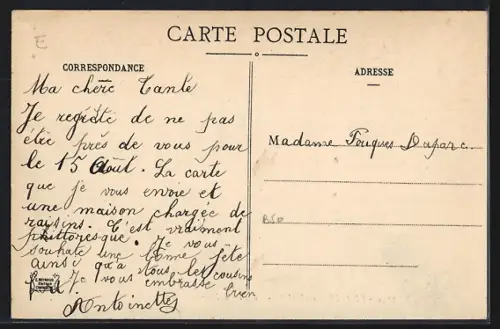 E
CARTE POSTALE
CORRESPONDANCE
Ma chère Tante
Je regrète de ne pas
être près de vous pour
le 15 Août. La carte
que je vous envoie et
une maison chargée de
raisins. C'est vraiment
phittoresque. Je vous
souhaite une bonne fête
ainsi qu'à tous les cousins
Je vous embrasse bien
Antoinette
ADRESSE
Madame Fouques Duparc
B50